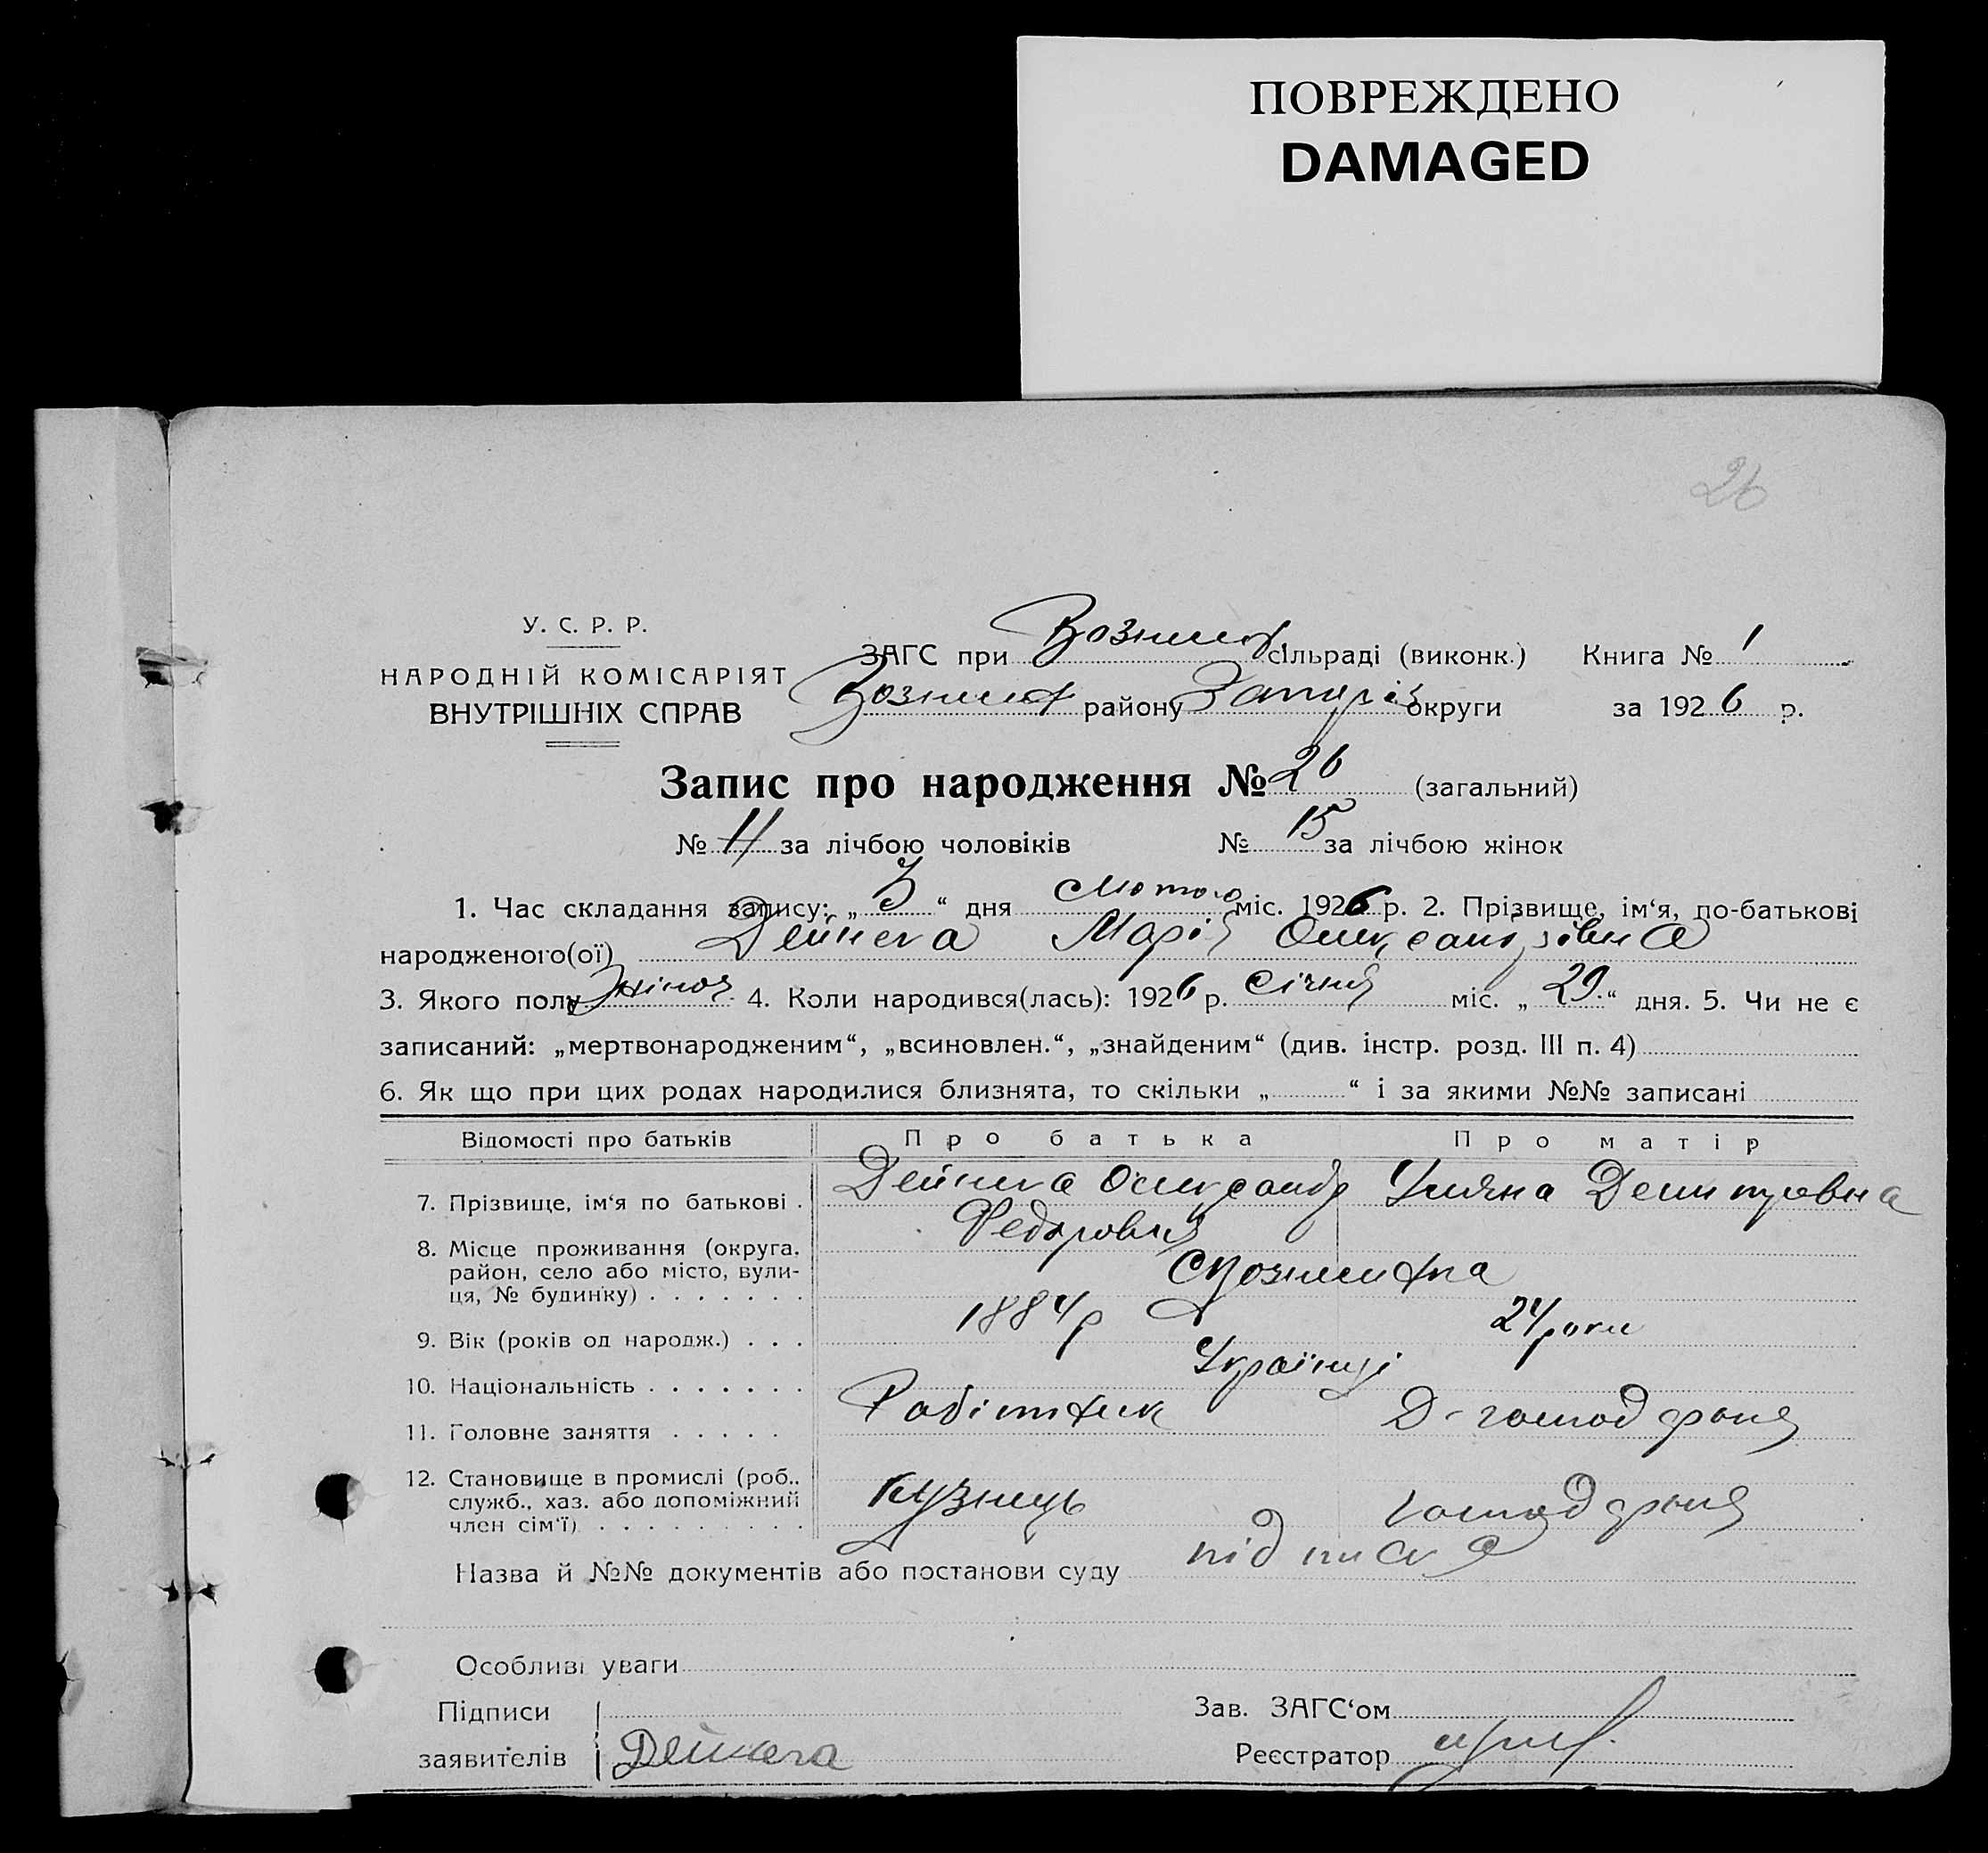 ПОВРЕЖДЕНО
DAMAGED
26
У. С. Р. Р.
НАРОДНІЙ КОМІСАРІЯТ
ВНУТРІШНІХ СПРАВ
ЗАГС при сільраді (виконк.) Книга № 1
району округи за 1926 р.
Запис про народження № 26 (загальний)
№ 11 за лічбою чоловіків № 15 за лічбою жінок
1. Час складання запису: „3“ дня Лютого міс. 1926 р. 2. Прізвище, ім‘я, по-батькові
народженого(ої) Дейнега Марія Олександрівна
3. Якого полу жіноч. 4. Коли народився(лась): 1926 р. Січня міс. „29.“ дня. 5. Чи не є
записаний: „мертвонародженим“, „всиновлен.“, „знайденим“ (див. інстр. розд. III п. 4)
6. Як що при цих родах народилися близнята, то скільки „ “ і за якими №№ записані
Відомості про батьків Про батька Про матір
7. Прізвище, ім‘я по батькові . Дейнега Олександр Уляна Демитровна
Федорович
8. Місце проживання (округа,
район, село або місто, вули-
ця, № будинку) . . . . . . .
9. Вік (років од народж.) . . . 1884р 24роки
10. Національність . . . . . . . Українці
11. Головне заняття . . . . . Робітник Д-господарня
12. Становище в промислі (роб.,
служб., хаз. або допоміжний
член сім‘ї) . . . . . . . . . Кузнець господарня
Назва й №№ документів або постанови суду підписка
Особливі уваги
Підписи Зав. ЗАГС‘ом
заявителів Дейнега Реєстратор